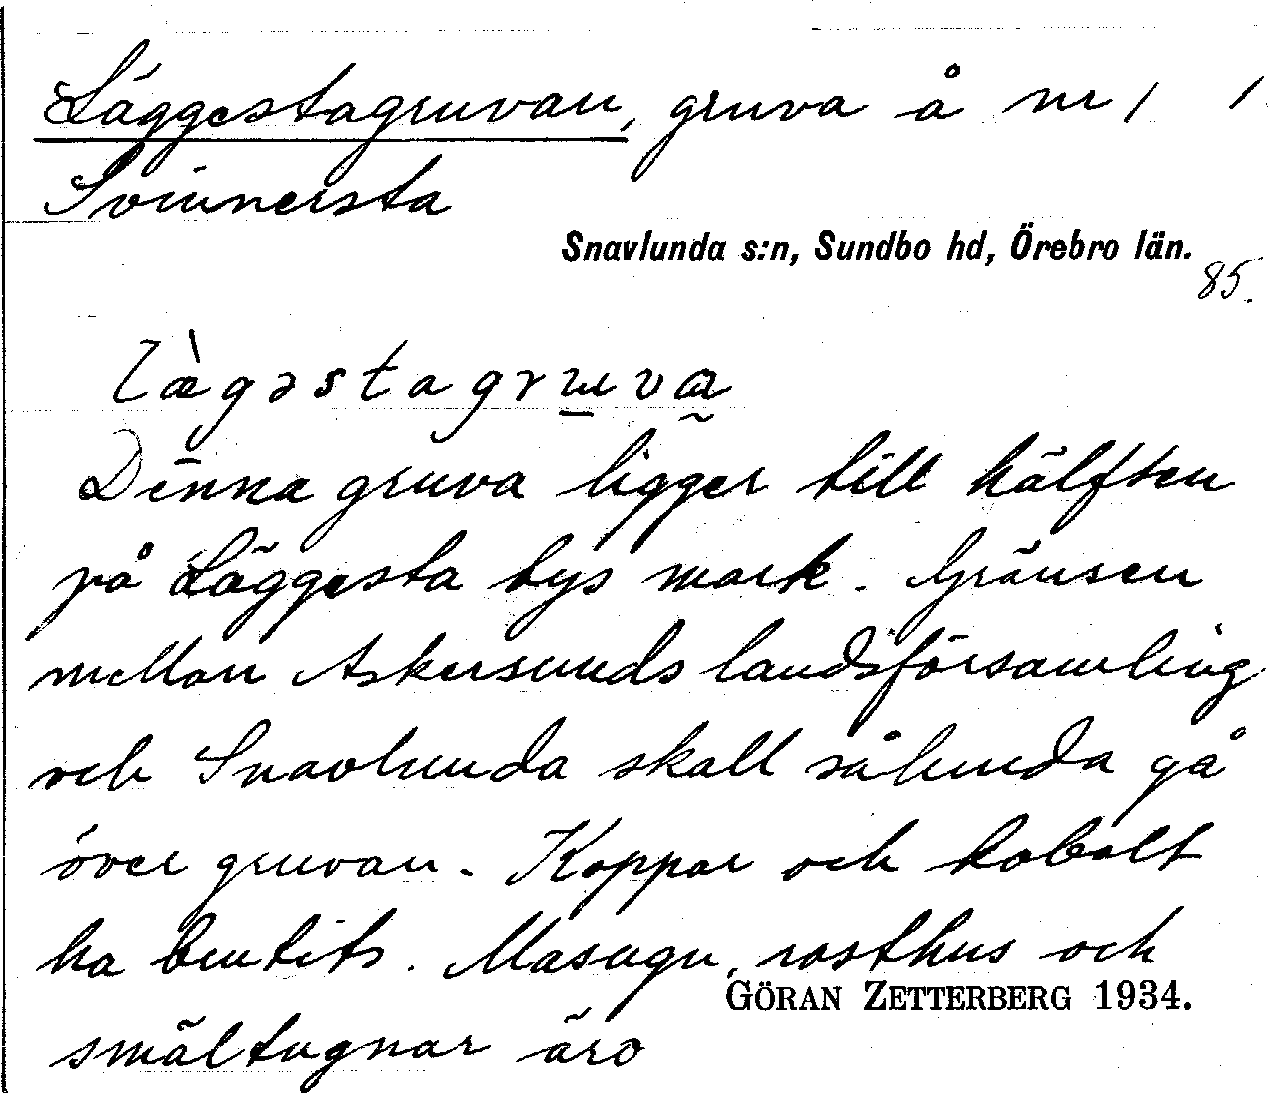 Läggestagruvan, gruva å nr 1 1
Svinnersta
Snavlunda s:n, Sundbo hd, Örebro län.
85.
lægəstagruva
Denna gruva ligger till hälften
på Läggesta bys mark. Gränsen
mellan Askersunds landsförsamling
och Snavlunda skall sålunda gå
över gruvan. Koppar och kobolt
ha brutits. Masugn, rosthus och
GÖRAN ZETTERBERG 1934.
smältugnar äro